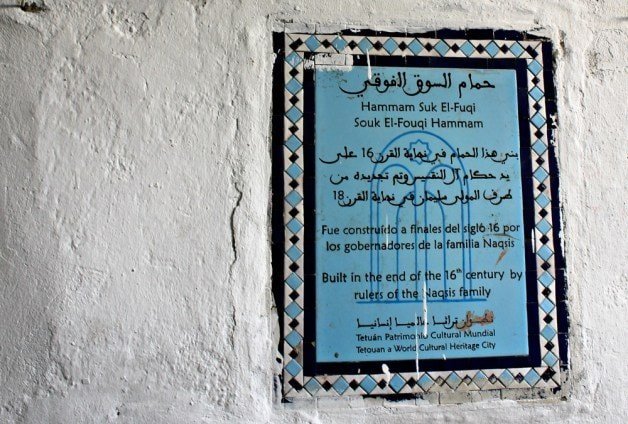 حمام السوق الفوقي
Hammam Suk El-Fuqi
Souk El-Fouqi Hammam
بني هذا الحمام في نهاية القرن 16 على
يد حكام آل النقسيس وتم تجديده من
طرف المولى سليمان في نهاية القرن 18
Fue construído a finales del sigló 16 por
los gobernadores de la familia Naqsis
Built in the end of the 16th century by
rulers of the Naqsis family
تراثا عالميا إنسانيا
Tetuán Patrimonio Cultural Mundial
Tetouan a World Cultural Heritage City